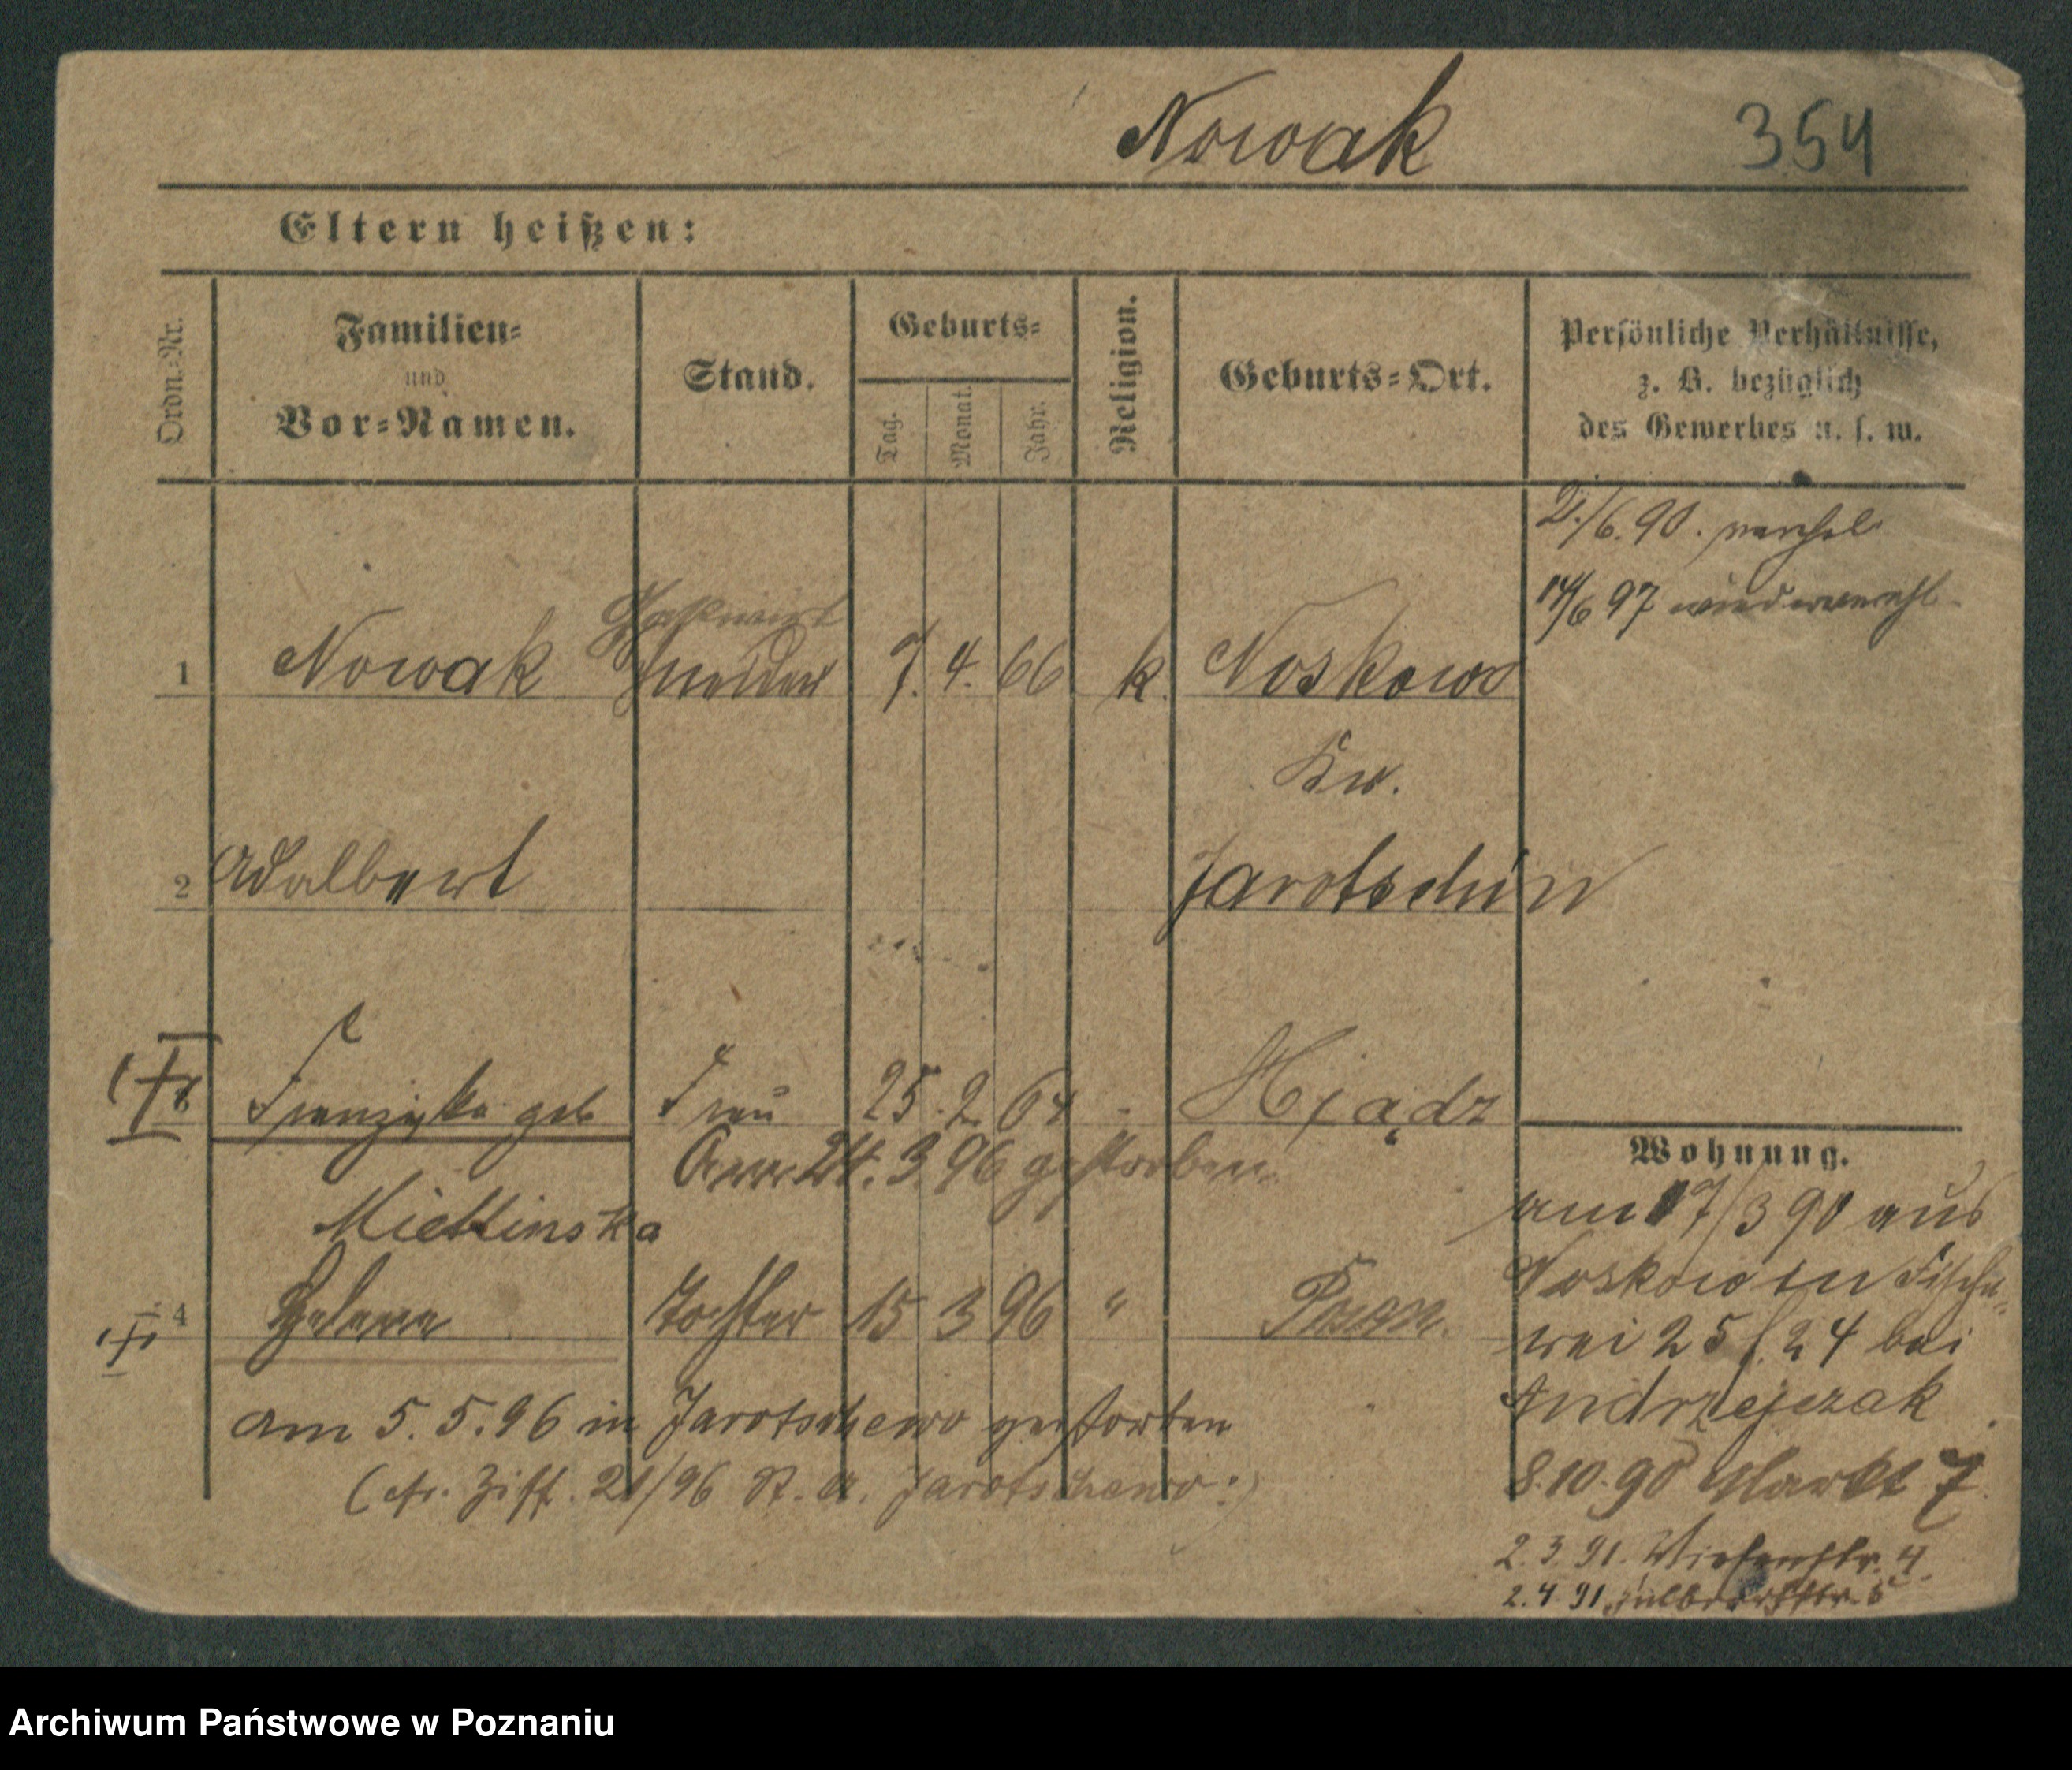 Nowak 354
Eltern heißen:
Ordn.-Nr.
Familien-
und
Vor-Namen.
Stand.
Geburts-
Tag.
Monat.
Jahr.
Religion.
Geburts-Ort.
Persönliche Verhältnisse,
z. B. bezüglich
des Gewerbes u. s. w.
2./6. 90. verehel
14/6 97 wiederverehl.
Gastwirt
1 Nowak 7. 4. 66 k. Noskowo
Kr.
2 Adalbert Jarotschin
Franziska geb Frau 25. 2 64 Xiądz
Am 24. 3. 96 gestorben.
Wohnung.
Mielinska
am 17/3 90 aus
Noskowo in Fische-
4 Helena Tochter 15 3 96 " Posen.
rei 25/24 bei
Andrzejczak
am 5. 5. 96 in Jarotschewo gestorben
8. 10. 90 Markt 7
(cfr. Ziff. 21/96 St. A. Jarotschewo:)
2. 3. 91. Wiesenstr. 4.
2. 4. 91